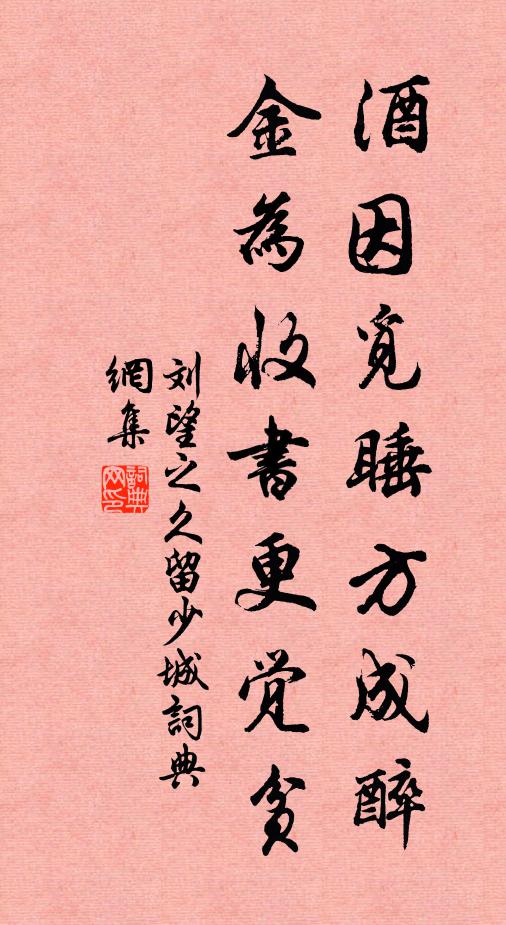 酒因覓睡方成醉
金為收書更覺貧
刘望之久留少城詞典
網集
詞典
网印